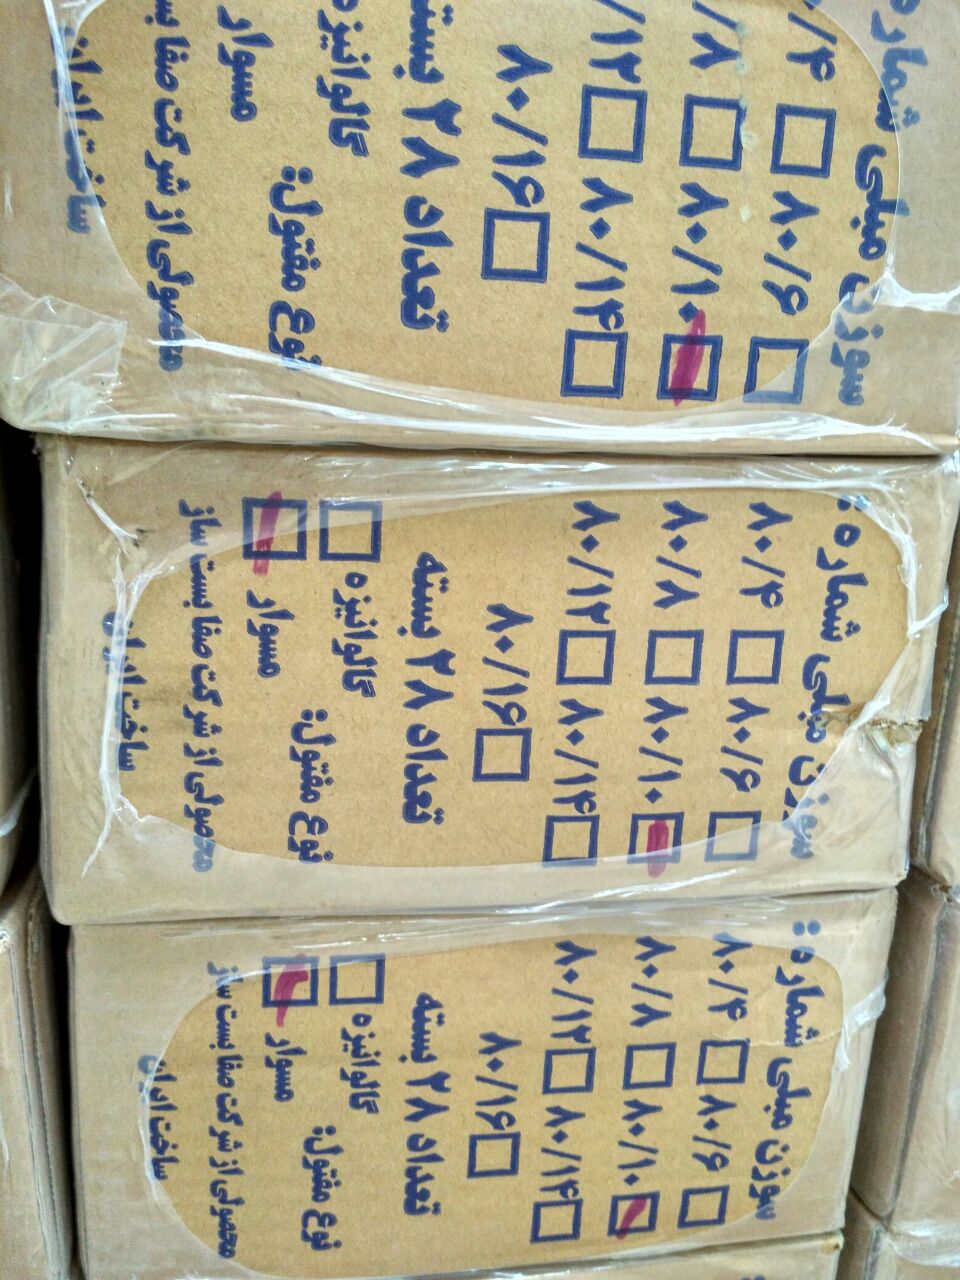 سوزن مبلی شماره:
۸۰/۶ ۸۰/۴
۸۰/۱۰ ۸۰/۸
۸۰/۱۴ ۸۰/۱۲
۸۰/۱۶
تعداد ۲۸ بسته
نوع مفتول:
گالوانیزه
مسوار
محصولی از شرکت صفا بست ساز
ساخت ایران
سوزن مبلی شماره:
۸۰/۶ ۸۰/۴
۸۰/۱۰ ۸۰/۸
۸۰/۱۴ ۸۰/۱۲
۸۰/۱۶
تعداد ۲۸ بسته
نوع مفتول:
گالوانیزه
مسوار
محصولی از شرکت صفا بست ساز
ساخت ایران
سوزن مبلی شماره
۸۰/۶ /۴
۸۰/۱۰ /۸
۸۰/۱۴ /۱۲
۸۰/۱۶
تعداد ۲۸ بسته
نوع مفتول:
گالوانیزه
مسوار
محصولی از شرکت صفا
ساخت ایران